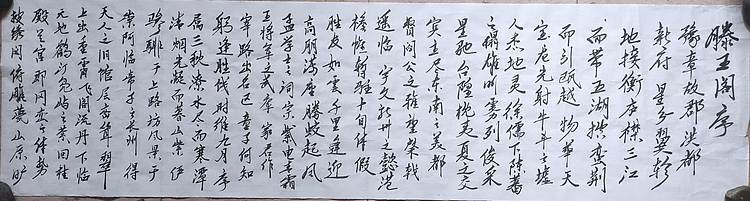 滕王阁序
豫章故郡洪都
新府星分翼轸
地接衡庐襟三江
而带五湖控蛮荆
而引瓯越物华天
宝龙光射牛斗之墟
人杰地灵徐孺下陈蕃
之榻雄州雾列俊采
星驰台隍枕夷夏之交
宾主尽东南之美都
督阎公之雅望棨戟
遥临宇文新州之懿范
襜帷暂驻十旬休假
胜友如云千里逢迎
高朋满座腾蛟起凤
孟学士之词宗紫电青霜
王将军之武库家君作
宰路出名区童子何知
躬逢胜饯时维九月序
属三秋潦水尽而寒潭
清烟光凝而暮山紫俨
骖騑于上路访风景于
崇阿临帝子之长洲得
天人之旧馆层峦耸翠
上出重霄飞阁流丹下临
无地鹤汀凫渚之萦回桂
殿兰宫即冈峦之体势
披绣闼俯雕甍山原旷